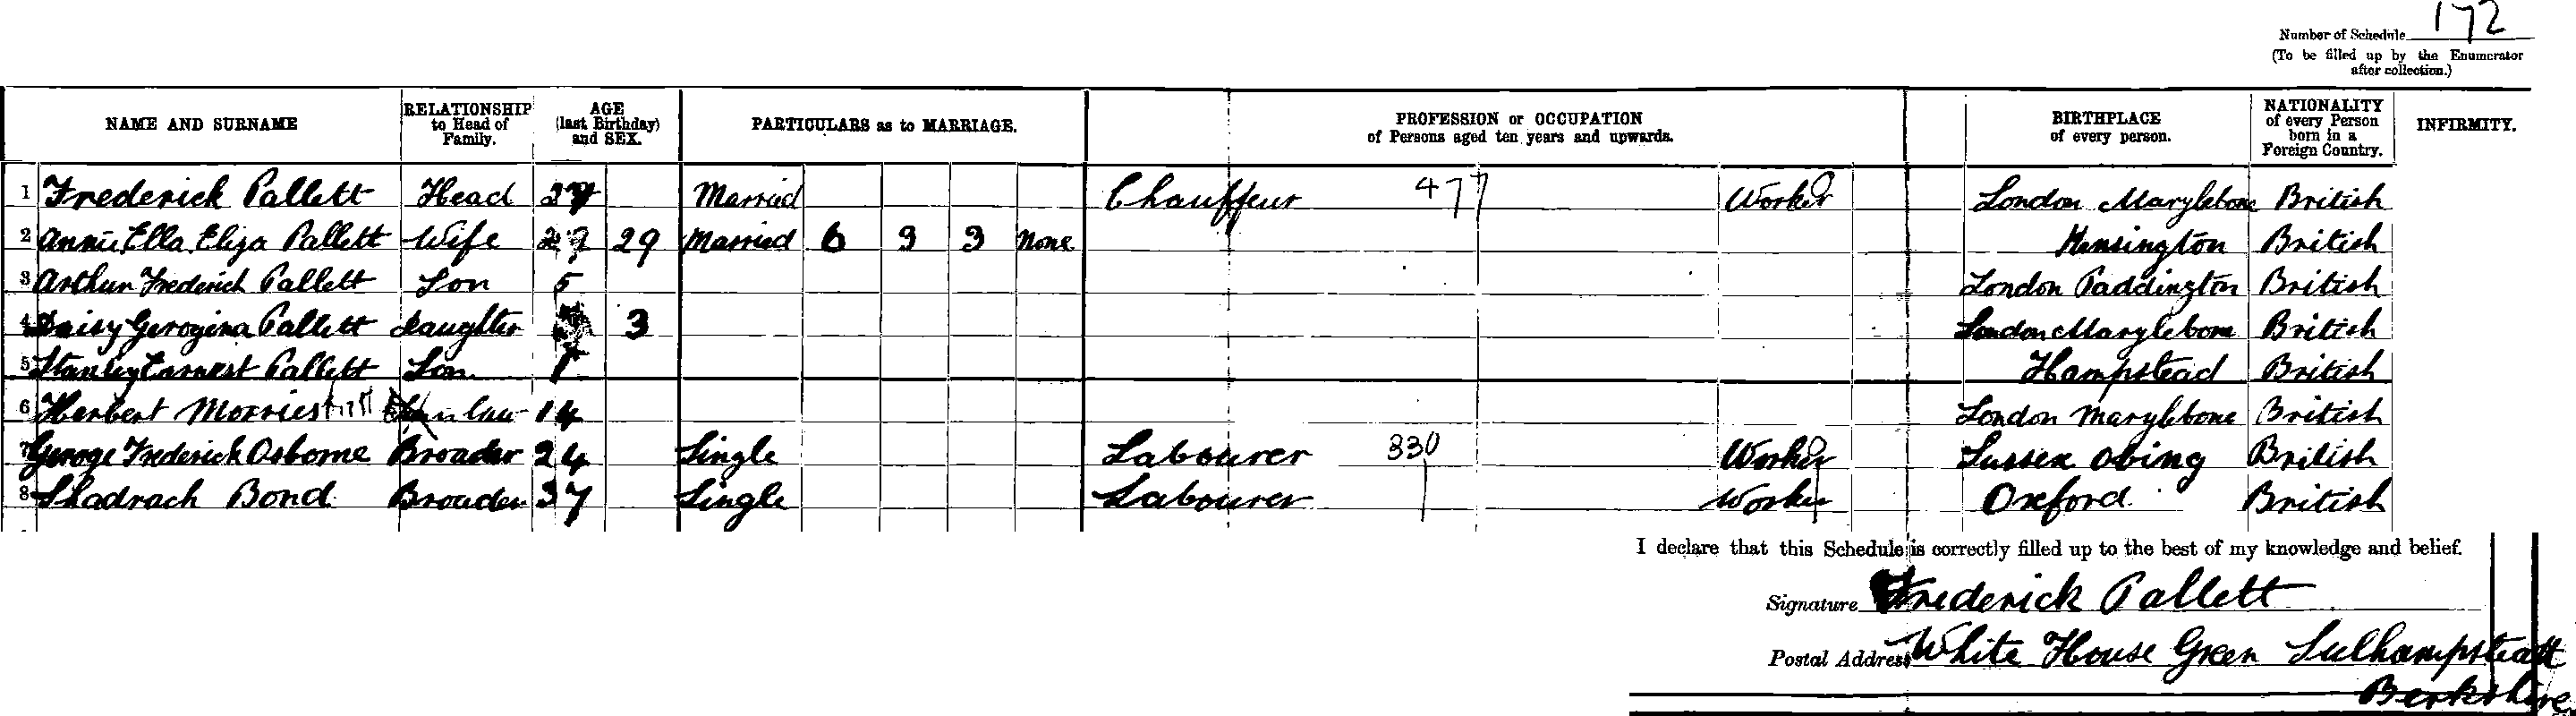 172
Number of Schedule
(To be filled up by the Enumerator
after collection.)
NAME AND SURNAME RELATIONSHIP to Head of Family. AGE (last Birthday) and SEX. PARTICULARS as to MARRIAGE. PROFESSION or OCCUPATION of Persons aged ten years and upwards. BIRTHPLACE of every person. NATIONALITY of every Person born in a Foreign Country. INFIRMITY.
1 Frederick Pallett Head Married Chauffeur 477 Worker London Marylebone British
2 Annie Ella Eliza Pallett Wife 29 Married 6 3 3 None Kensington British
3 Arthur Frederick Pallett Son 5 London Paddington British
4 Daisy Gerogina Pallett daughter 3 London Marylebone British
5 Stanley Earnest Pallett Son 1 Hampstead British
6 Herbert Morries in law 14 London Marylebone British
7 Geroge Frederick Osborne Broader 24 Single Labourer 330 Worker Sussex Obing British
8 Shadrach Bond Broader 37 Single Labourer Worker Oxford British
I declare that this Schedule is correctly filled up to the best of my knowledge and belief.
Signature Frederick Pallett
Postal Address White House Green Sulhampstead
Berkshire